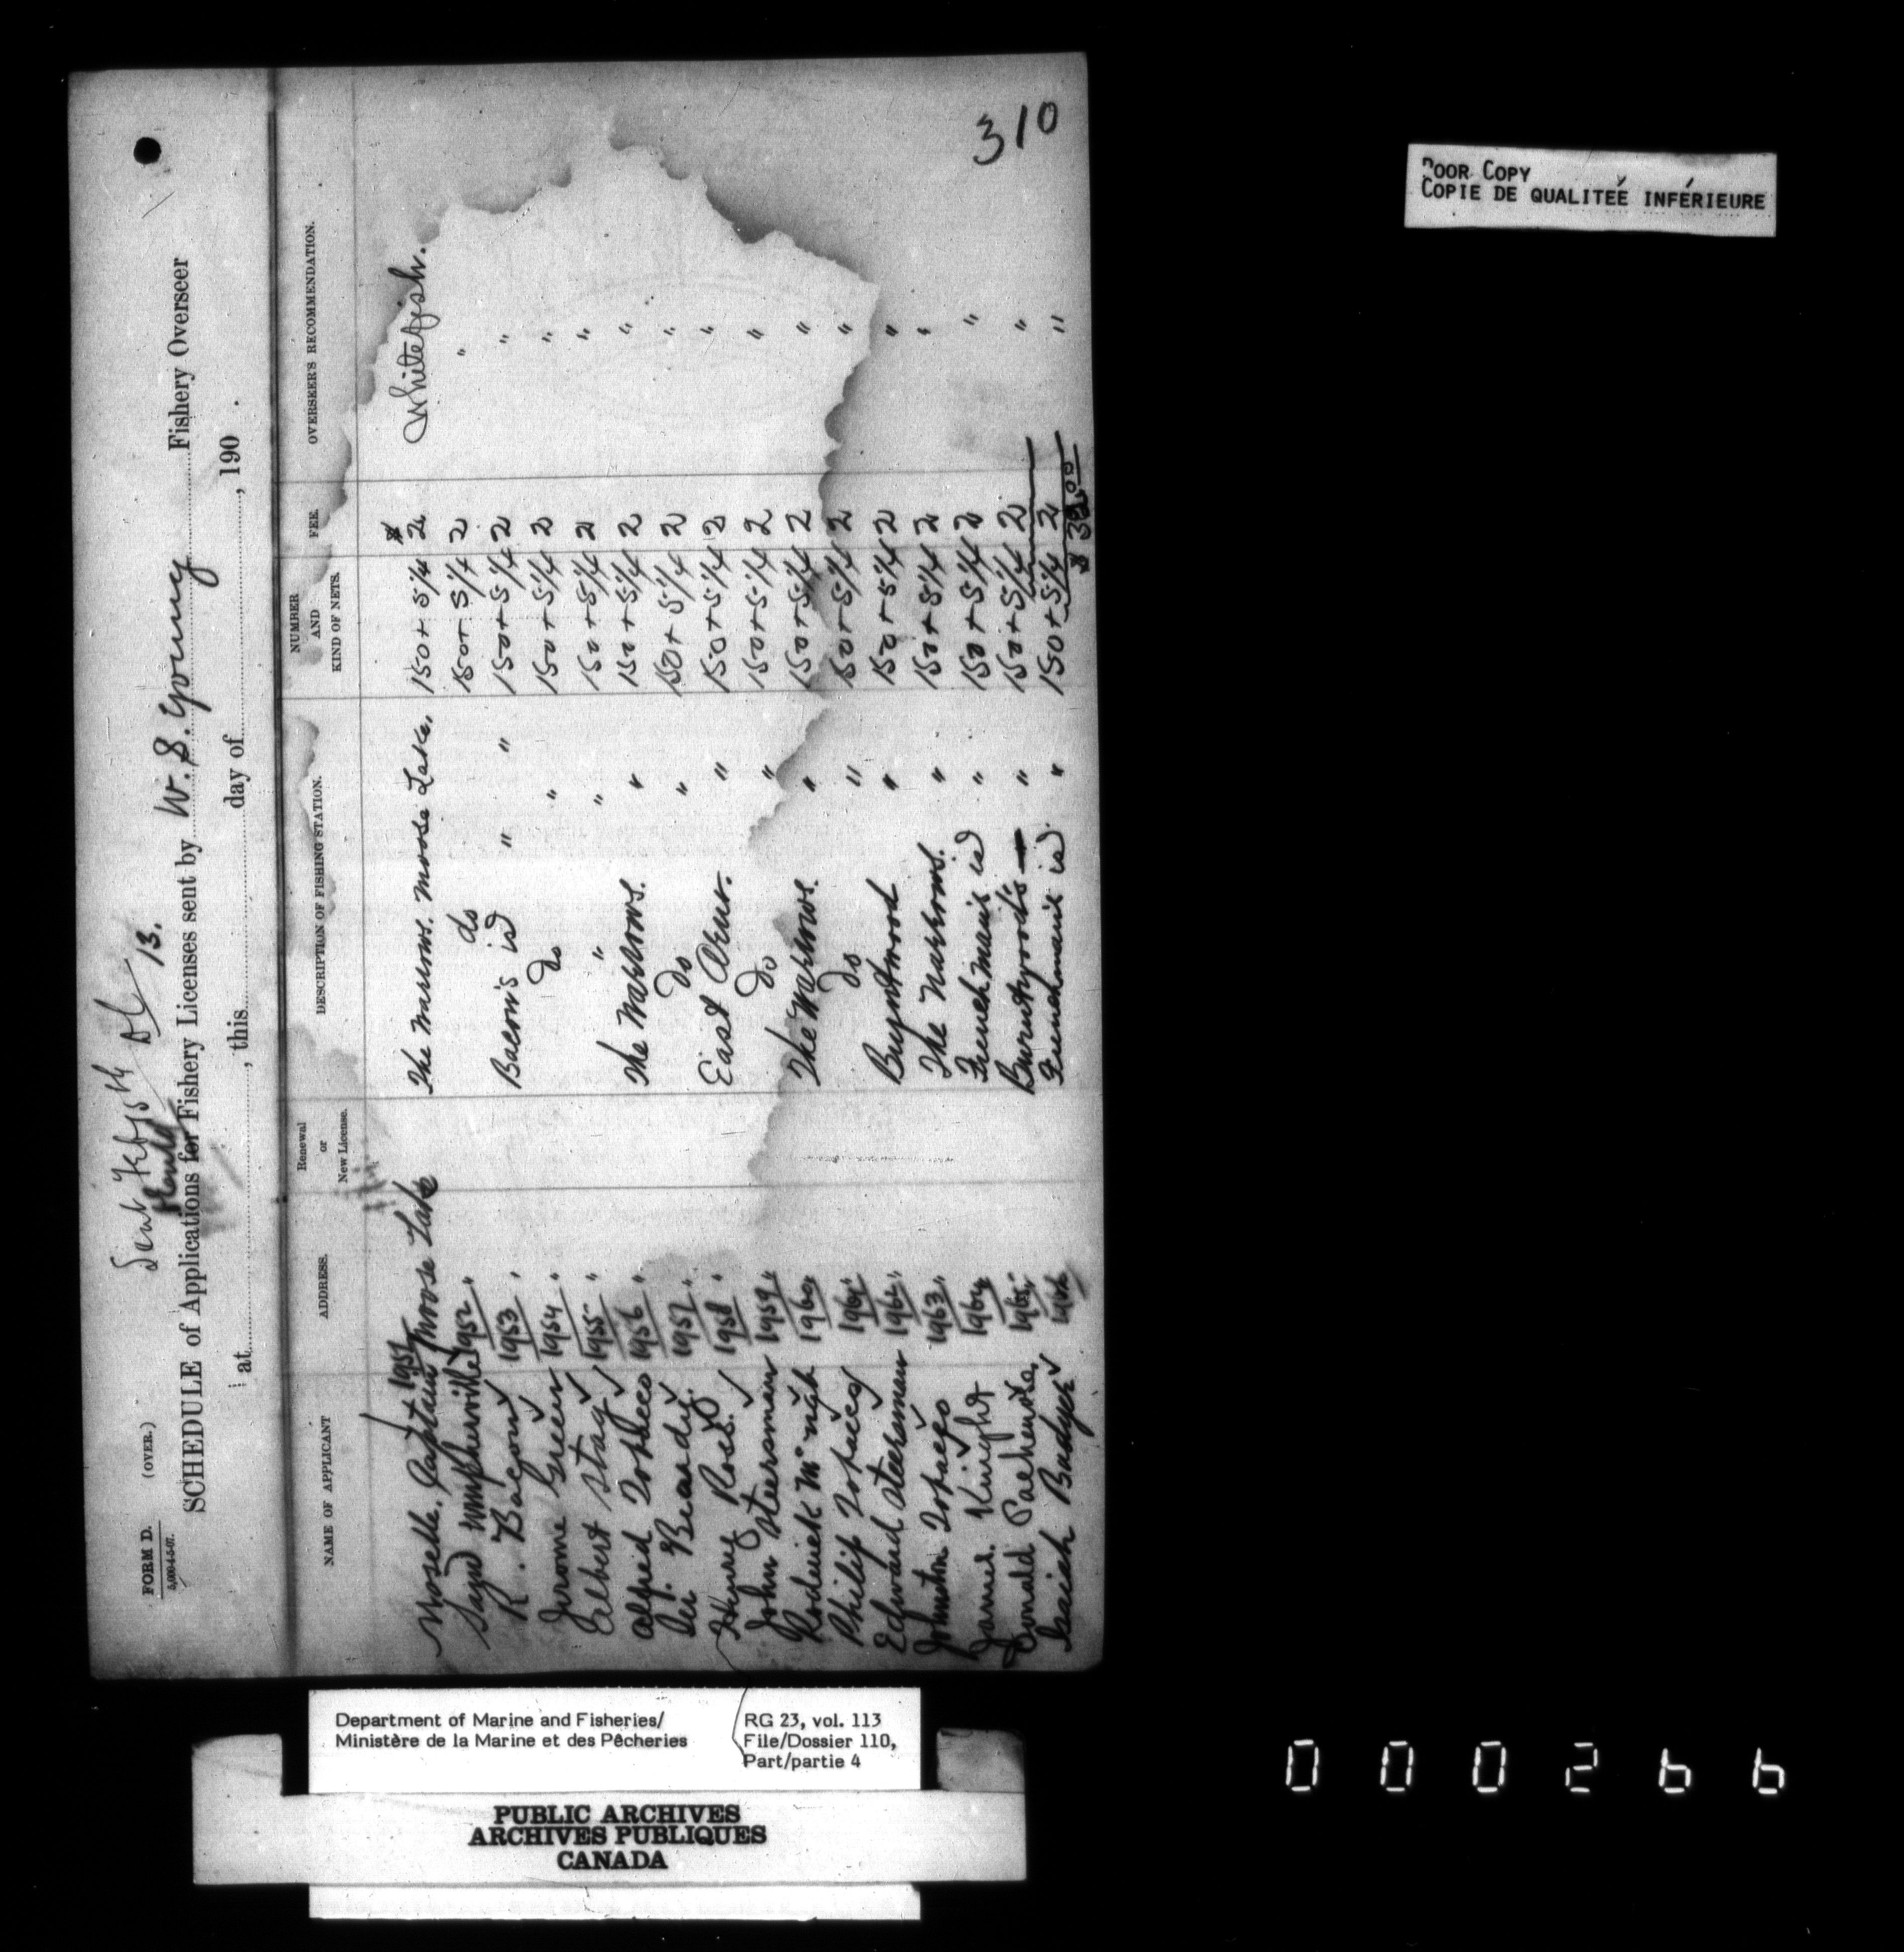 310
FORM D. (OVER.)
5,000-4-5-07.
Sent Feby 5th
13.
SCHEDULE of Applications for Fishery Licenses sent by W. S. Young Fishery Overseer
at , this day of , 190 .
NAME OF APPLICANT ADDRESS. Renewal or New License. DESCRIPTION OF FISHING STATION. NUMBER AND KIND OF NETS. FEE. OVERSEER'S RECOMMENDATION.
Captain 1951 Moose Lake The Narrows. Moose Lake. 150 + 5 1/4 $ 2 Whitefish.
1952 " do 150 + 5 1/4 2 "
R. Bacon 1953 " Bacon's isd " " 150 + 5 1/4 2 "
Jerome Green 1954 " do " 150 + 5 1/4 2 "
Albert Stag 1955 " " " 150 + 5 1/4 2 "
Alfred Tobacco 1956 " The Narrows. " 150 + 5 1/4 2 "
Beardy. 1957 " do " 150 + 5 1/4 2 "
Henry Ross. 1958 " East Arm. " 150 + 5 1/4 2 "
John Steersman 1959 " do " 150 + 5 1/4 2 "
Roderick 1960 The Narrows. " 150 + 5 1/4 2 "
Philip Tobacco 1961 " do " 150 + 5 1/4 2 "
Edward Steersman 1962 " Burntwood " 150 + 5 1/4 2 "
Johnston Tobacco 1963 " The Narrows. " 150 + 5 1/4 2 "
James Knight 1964 Frenchman's isd " 150 + 5 1/4 2 "
Donald 1965 Burntwood's " 150 + 5 1/4 2 "
Isaiah Badger 1966 Frenchman's isd. " 150 + 5 1/4 2 "
$ 32.00
POOR COPY
COPIE DE QUALITEÉ INFÉRIEURE
Department of Marine and Fisheries/
Ministère de la Marine et des Pêcheries
RG 23, vol. 113
File/Dossier 110,
Part/partie 4
PUBLIC ARCHIVES
ARCHIVES PUBLIQUES
CANADA
000266